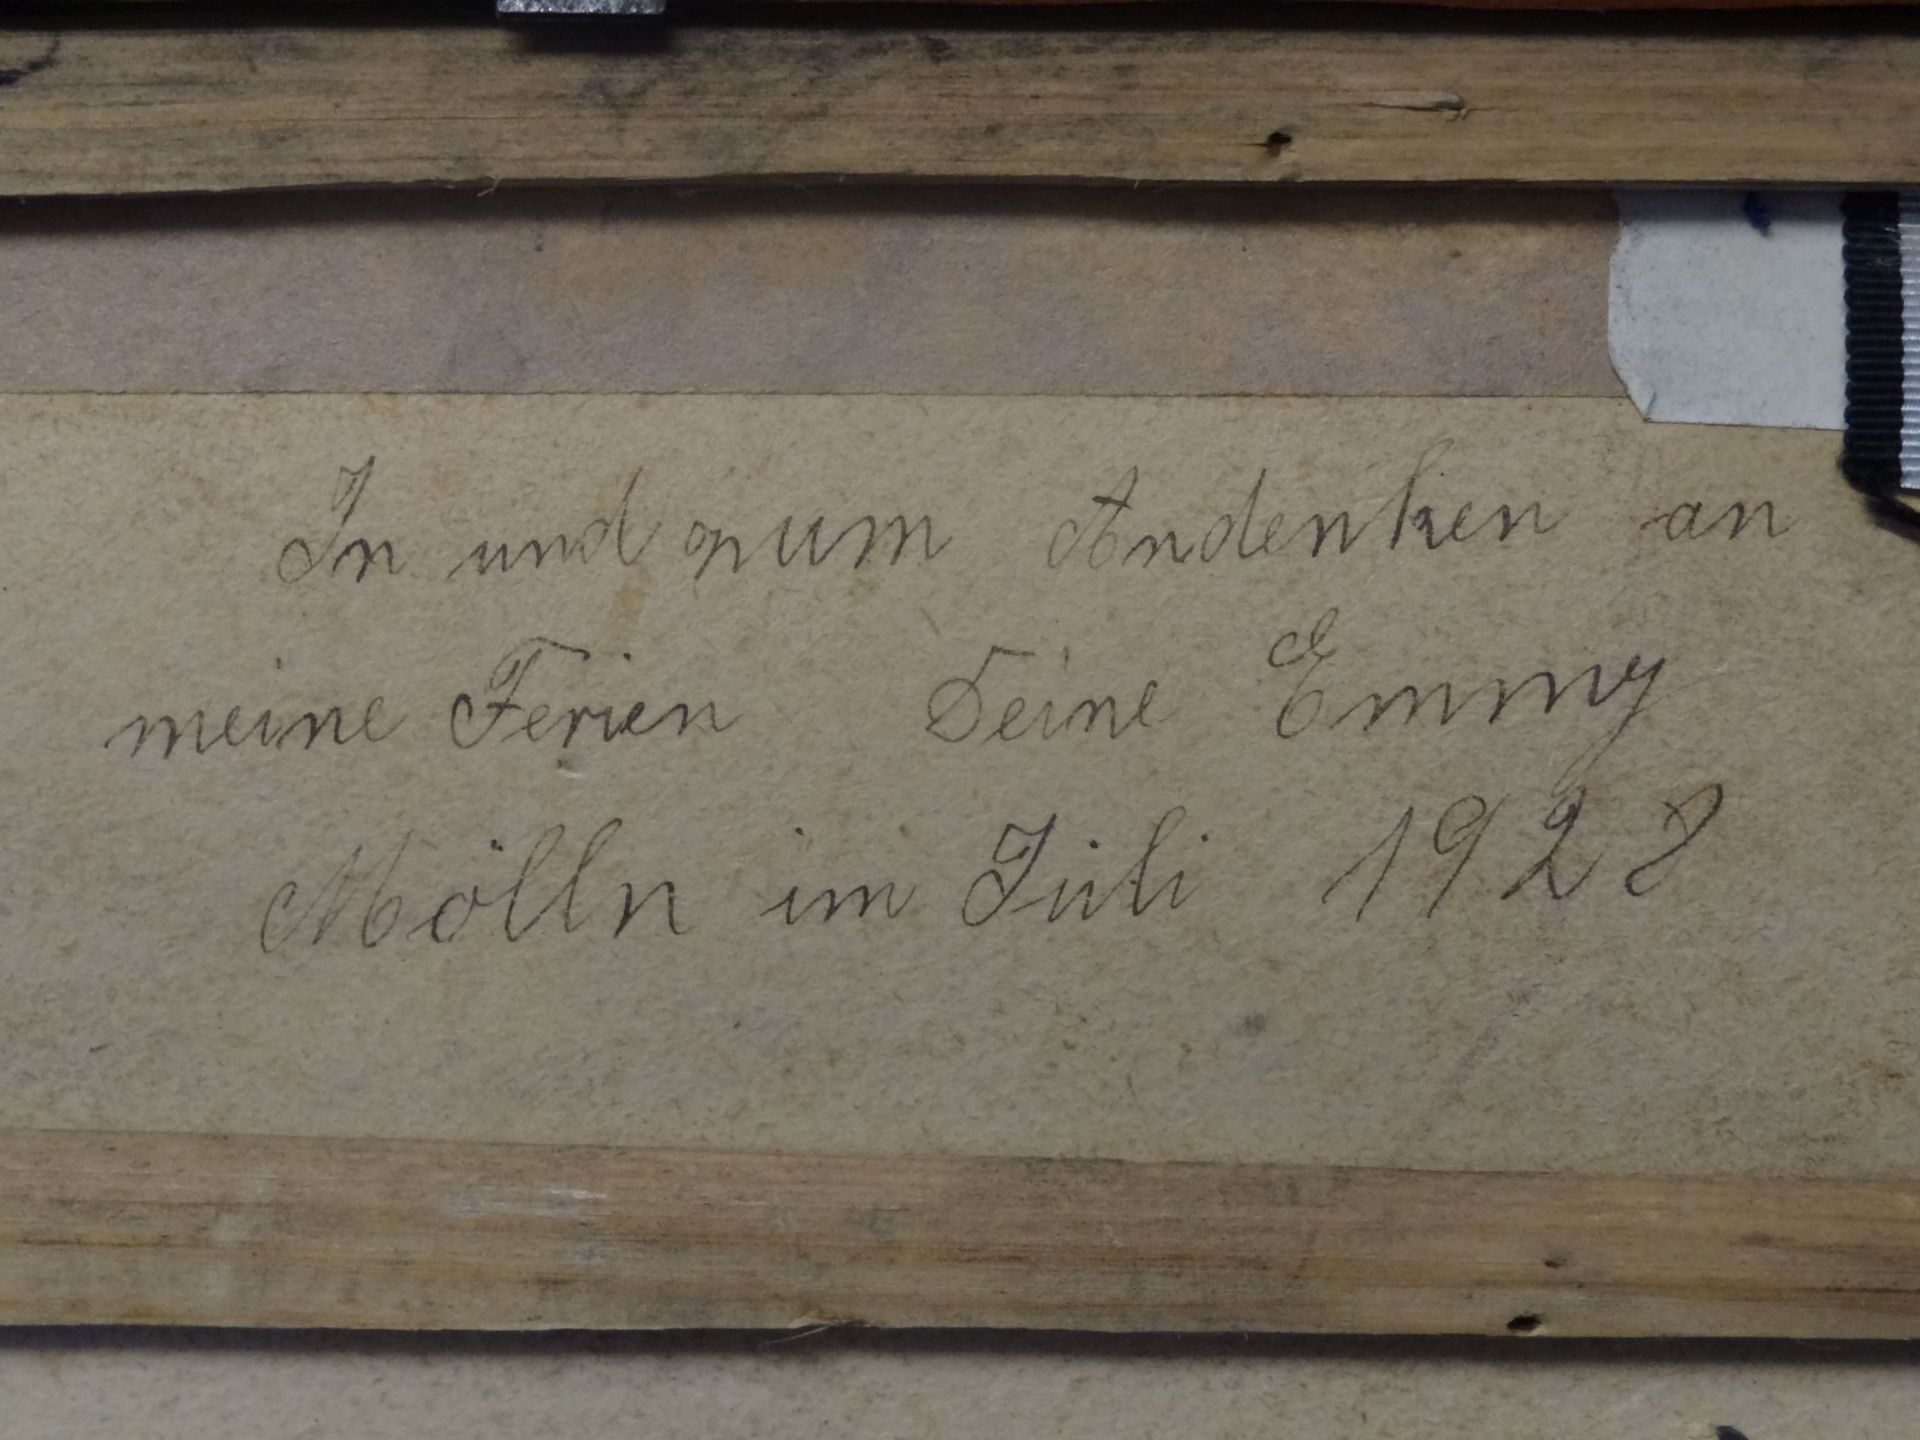 In und zum Andenken an
meine Ferien Deine Emmy
Mölln im Juli 1928